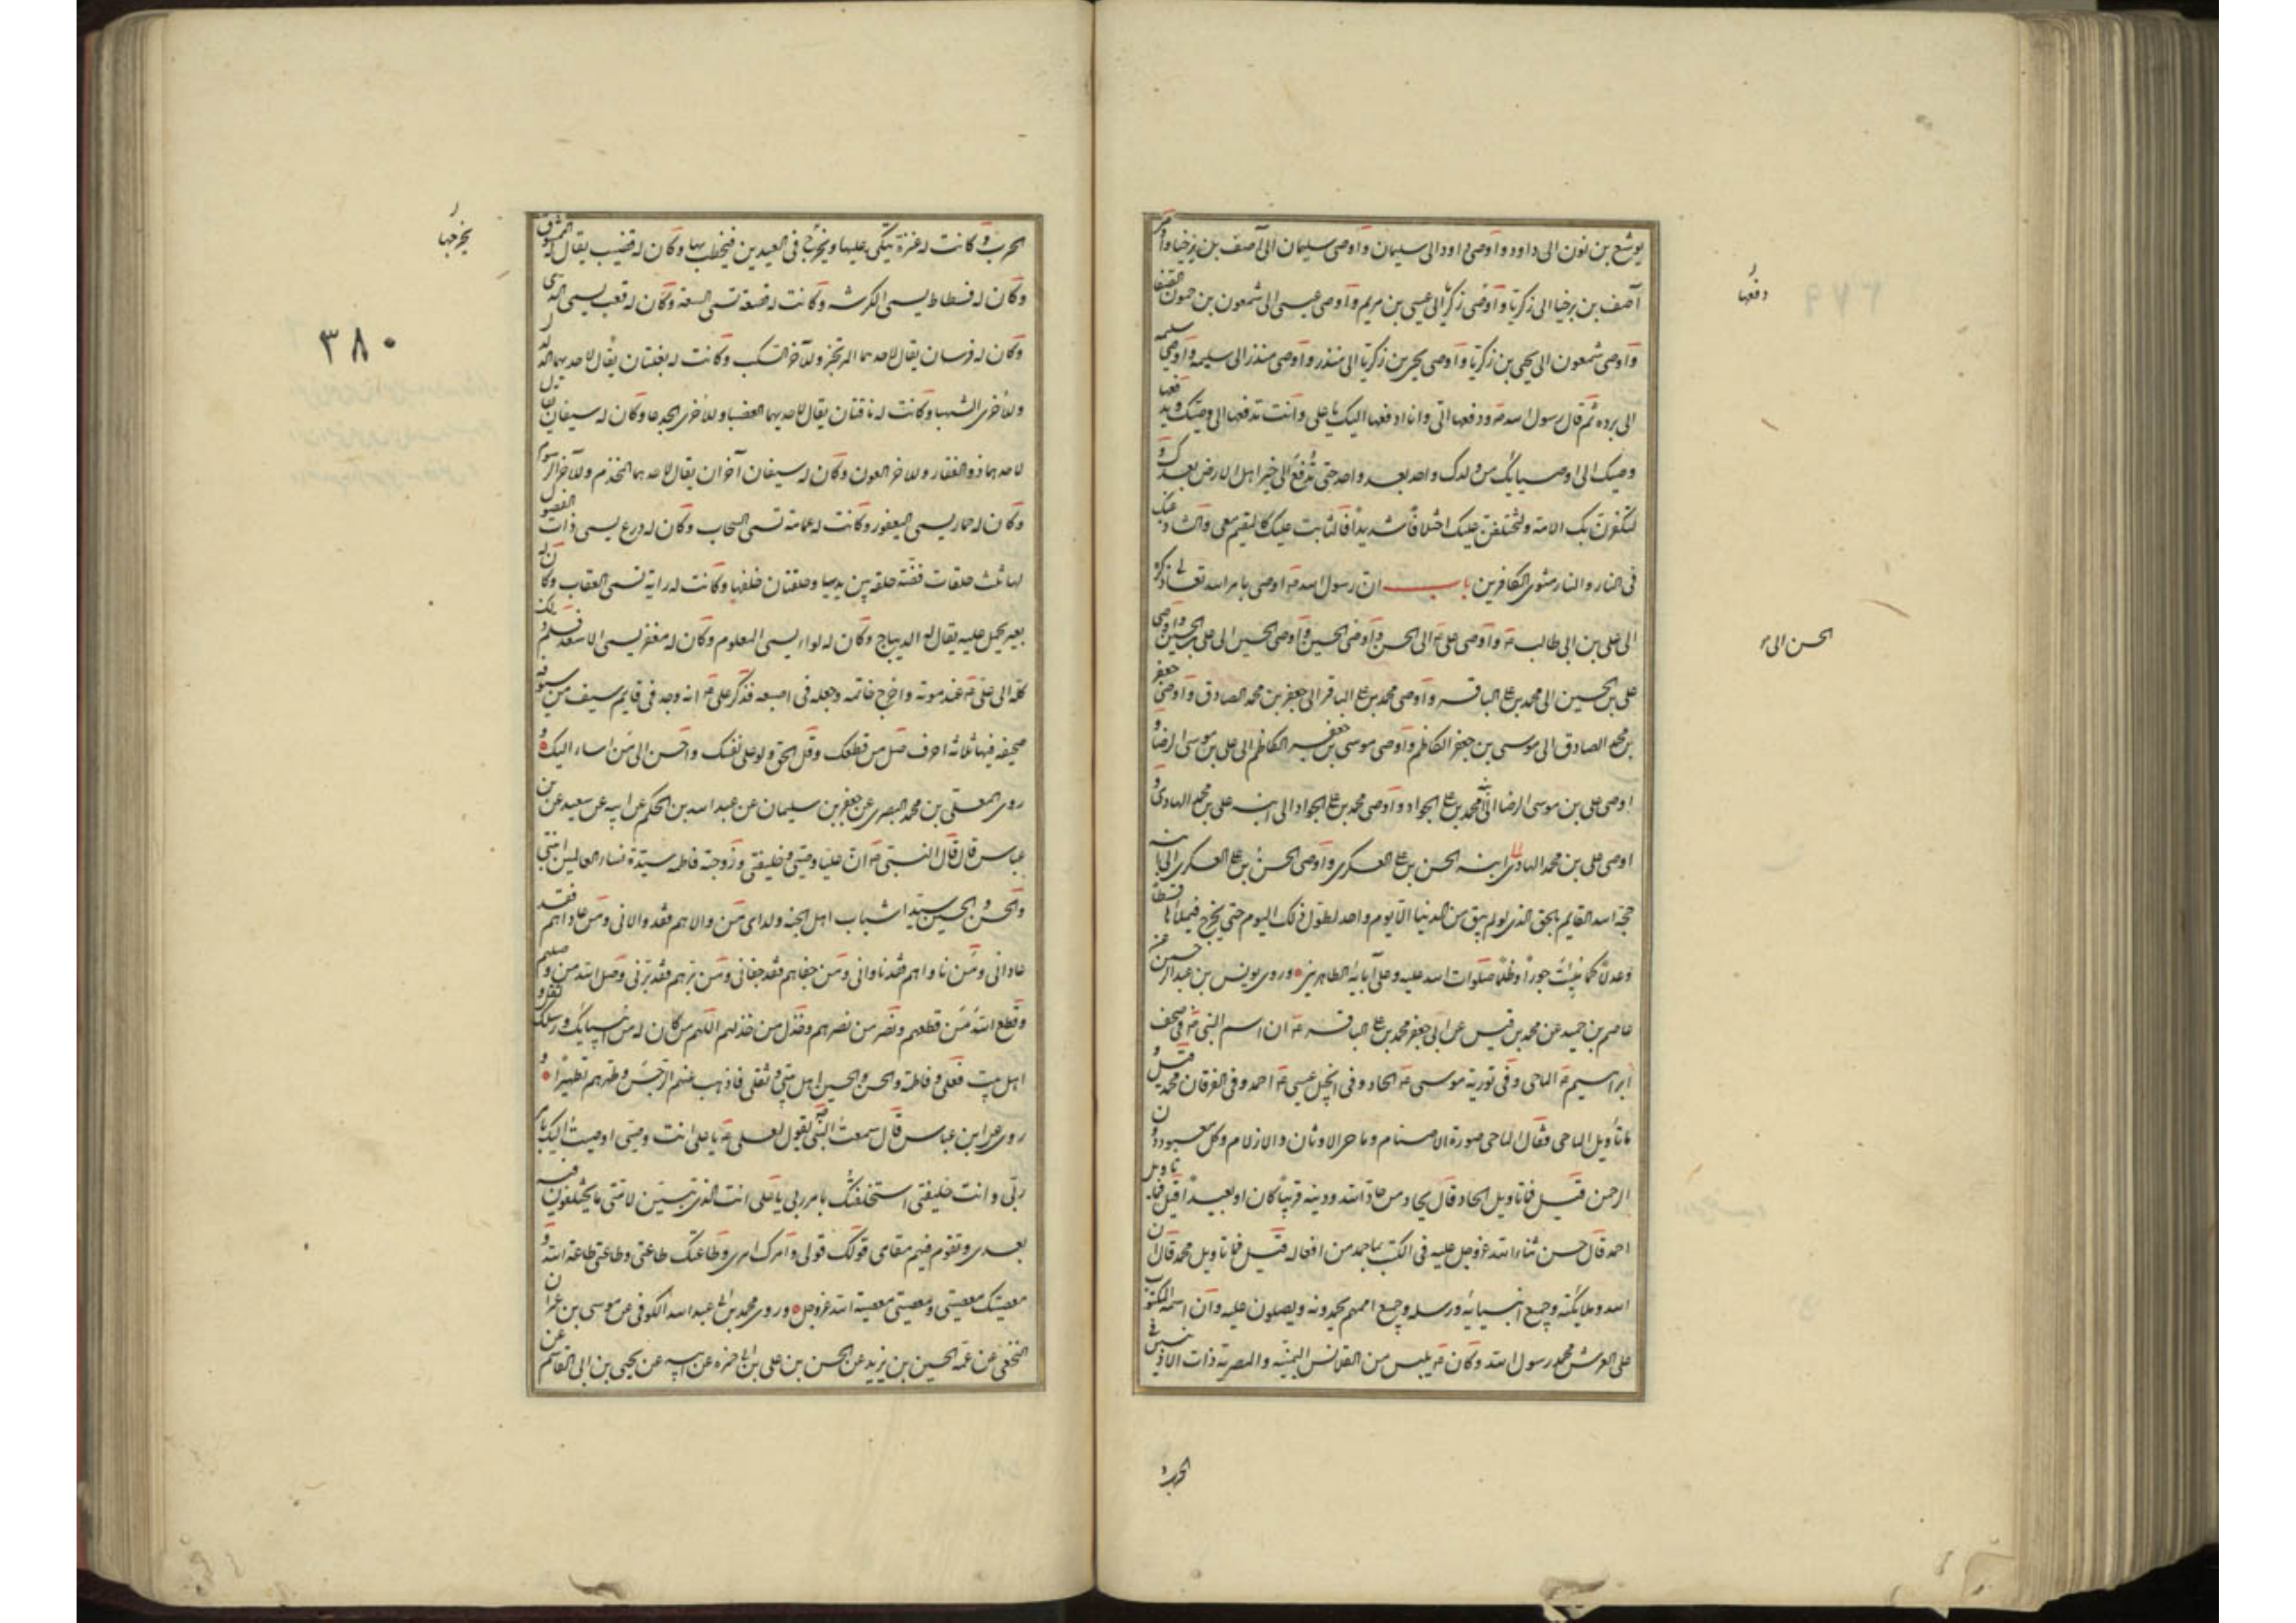 يوشع بن نون الى داود واوصى داود الى سليمان واوصى سليمان الى آصف بن برخيا واوصى
آصف بن برخيا الى زكريا واوصى زكريا الى عيسى بن مريم واوصى عيسى الى شمعون بن حمون الصفا
واوصى شمعون الى يحيى بن زكريا واوصى يحيى بن زكريا الى منذر واوصى منذر الى سليمه واوصى سليمه
الى برده ثم قال رسول الله ص ودفعها الىّ وانا ادفعها اليك يا على وانت تدفعها الى وصيك ويدفعها
وصيك الى اوصيائك من ولدك واحد بعد واحد حتى تدفع الى خير اهل الارض بعدك و
لتكفرن بك الامة ولتختلفن عليك اختلافا شديدا فالثابت عليك كالمقيم معى والشاذ عنك
فى النار والنار مثوى الكافرين باب ان رسول الله ص اوصى بامر الله تعالى ذكره
الى على بن ابى طالب ع واوصى على ع الى الحسن واوصى الحسن الى الحسين واوصى الحسين الى على بن الحسين واوصى
على بن الحسين الى محمد بن على الباقر واوصى محمد بن على الباقر الى جعفر بن محمد الصادق واوصى جعفر
بن محمد الصادق الى موسى بن جعفر الكاظم واوصى موسى بن جعفر الكاظم الى على بن موسى الرضا و
اوصى على بن موسى الرضا الى ابنه محمد بن على الجواد واوصى محمد بن على الجواد الى ابنه على بن محمد الهادى و
اوصى على بن محمد الهادى الى ابنه الحسن بن على العسكرى واوصى الحسن بن على العسكرى الى ابنه
حجة الله القايم بالحق الذى لو لم يبق من الدنيا الا يوم واحد لطول ذلك اليوم حتى يخرج فيملأها قسطا
وعدلا كما ملئت جورا وظلما صلوات الله عليه وعلى آبائه الطاهرين وروى يونس بن عبد الرحمن عن
عاصم بن حميد عن محمد بن قيس عن ابى جعفر محمد بن على الباقر ع ان اسم النبى ص فى صحف
ابراهيم ع الماحى وفى توريه موسى ع الحاد وفى انجيل عيسى ع احمد وفى الفرقان محمد قيل
ما تأويل الماحى فقال الماحى صورة الاصنام وماحى الاوثان والازلام وكل معبود دون
الرحمن قيل فما تاويل الحاد قال يحاد من حاد الله ودينه قريبا كان او بعيدا قيل فما تاويل
احمد قال حسن ثناء الله عز وجل عليه فى الكتب بما حمد من افعاله قيل فما تاويل محمد قال ان
الله وملايكته وجميع انبيائه ورسله وجميع اممهم يحمدونه ويصلون عليه وان اسمه المكتوب
على العرش محمد رسول الله وكان ص يلبس من القلانس اليمنيه والمصرية ذات الاذنين فى
الحرب و
دفعها
الحسن الى
الحرب وكانت له عنزة يتكى عليها ويخرج فى العيدين فيخطب بها وكان له قضيب يقال له الممشوق
وكان له فسطاط يسمى الكن وكانت له قصعة تسمى السعة وكان له قعب يسمى الرى
وكان له فرسان يقال لاحدهما المرتجز وللآخر السكب وكانت له بغلتان يقال لاحديهما الدلدل
وللاخرى الشهبا وكانت له ناقتان يقال لاحديهما العضبا وللاخرى الجدعا وكان له سيفان يقال
لاحدهما ذو الفقار وللاخر العون وكان له سيفان آخران يقال لاحدهما المخذم وللآخر الرسوم
وكان له حمار يسمى اليعفور وكانت له عمامة تسمى السحاب وكان له درع يسمى ذات الفضول
لها ثلث حلقات فضه حلقه بين يديها وحلقتان خلفها وكانت له راية تسمى العقاب وكان له
بعير يحمل عليه يقال له الديباج وكان له لواء يسمى المعلوم وكان له مغفر يسمى الاسعد فسلم ذلك
كله الى على ع عند موته واخرج خاتمه وجعله فى اصبعه فذكر على ع انه وجد فى قايم سيف من سيوفه
صحيفه فيها ثلاثه احرف صل من قطعك وقل الحق ولو على نفسك واحسن الى من اساء اليك و
روى المعلى بن محمد البصرى عن جعفر بن سليمان عن عبد الله بن الحكم عن ابيه عن سعيد عن ابن
عباس قال قال النبى ص ان عليا وصيى وخليفتى وزوجته فاطمه سيدة نساء العالمين ابنتى
والحسن والحسين سيدا شباب اهل الجنه ولداى من والاهم فقد والانى ومن عاداهم فقد
عادانى ومن ناواهم فقد ناوانى ومن جفاهم فقد جفانى ومن برهم فقد برنى وصل الله من وصلهم
وقطع الله من قطعهم ونصر من نصرهم وخذل من خذلهم اللهم من كان له من انبيائك ورسلك ثقل و
اهل بيت فعلى وفاطمة والحسن والحسين اهل بيتى وثقلى فاذهب عنهم الرجس وطهرهم تطهيرا و
روى عن ابن عباس قال سمعت النبى يقول لعلى ع يا على انت وصيى اوصيت اليك بامر
ربى وانت خليفتى استخلفتك بامر ربى يا على انت الذى تبين لامتى ما يختلفون فيه
بعدى وتقوم فيهم مقامى قولك قولى وامرك امرى وطاعتك طاعتى وطاعتى طاعة الله و
معصيتك معصيتى ومعصيتى معصية الله عز وجل وروى محمد بن ابى عبد الله الكوفى عن موسى بن عمران
النخعى عن عمه الحسين بن يزيد عن الحسن بن على بن ابى حمزه عن ابيه عن يحيى بن ابى القاسم عن
يخرجها
٣٨٠